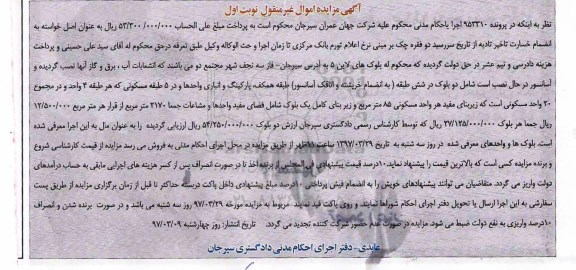 آگهی مزایده اموال غیرمنقول نوبت اول
نظر به اینکه در پرونده ۹۵۳۳۱۰ اجرا یاحکام مدنی محکوم علیه شرکت جهان عمران سیرجان محکوم است به پرداخت مبلغ علی الحساب ۵۳/۳۰۰/۰۰۰/۰۰۰ ریال به عنوان اصل خواسته به
انضمام خسارت تاخیر تادیه از تاریخ سررسید دو فقره چک بر مبنی نرخ اعلام تورم بانک مرکزی تا زمان اجرا و حق الوکاله وکیل طبق تعرفه درحق محکوم له آقای سید علی حسینی و پرداخت
هزینه دادرسی و نیم عشر در حق دولت گردیده که محکوم له بلوک های لاین ۵ به آدرس سیرجان - فاز سه نجف شهر مجتمع دو می باشند که انشعابات آب ، برق و گاز آنها نصب گردیده و
آسانسور در حال نصب است شامل دو بلوک در شش طبقه ( به انضمام خرپشته و اتاقک آسانسور) طبقه همکف، پارکینگ و انباری واحدها و در ۵ طبقه مسکونی که هر طبقه ۴ واحد و در مجموع
۲۰ واحد مسکونی است که زیربنای مفید هر واحد مسکونی ۸۵ متر مربع و زیر بنای کامل یک بلوک شامل فضای مفید واحدها و مشاعات جمعا ۲۱۷۰ متر مربع از قرار هر متر مربع ۱۲/۵۰۰/۰۰۰
ریال جمعا هر بلوک ۲۷/۱۲۵/۰۰۰/۰۰۰ ریال که توسط کارشناس رسمی دادگستری سیرجان ارزش دو بلوک ۵۴/۲۵۰/۰۰۰/۰۰۰ ریال ارزیابی گردیده را به عنوان مال به این اجرا معرفی شده
است. بلوک ها و واحدهای معرفی شده در روز سه شنبه به تاریخ ۱۳۹۷/۰۳/۲۹ ساعت ۱۲ظهر از طریق مزایده در محل اجرای احکام مدنی به فروش می رسد مزایده از قیمت کارشناسی شروع
و برنده مزایده کسی است که بالاترین قیمت را پیشنهاد نماید.۱۰درصد قیمت پیشنهادی فی المجلس از برنده اخذ تا در صورت انصراف پس از کسر هزینه های اجرایی مابقی به حساب درآمدهای
دولت واریز می گردد. متقاضیان می توانند پیشنهادهای خویش را به انضمام فیش پرداختی ۱۰درصد مبلغ پیشنهادی داخل پاکت دربسته حداکثر تا قبل از زمان برگزاری مزایده از طریق پست
سفارشی به این اجرا ارسال یا تحویل دفتر اجرای احکام شوراها نمایند و روی پاکت قید نمایند مربوط به مزایده مورخه ۹۷/۰۳/۲۹ روز سه شنبه می باشد و در صورت برنده شدن و انصراف
۱۰درصد واریزی به نفع دولت ضبط می شود. مزایده در صورت عدم حضور شرکت کننده تجدید می گردد. تاریخ انتشار: روز چهارشنبه ۹۷/۰۳/۰۹
عابدی - دفتر اجرای احکام مدنی دادگستری سیرجان